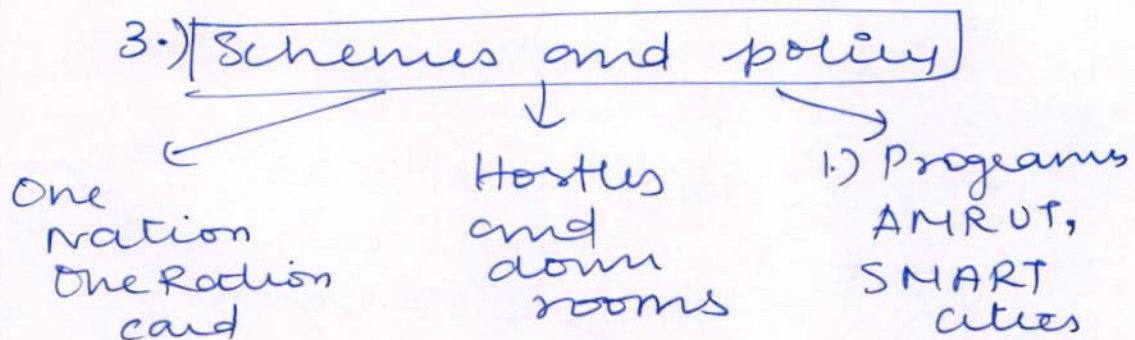 3.) Schemes and policy
One
Nation
One Radion
card
Hostles
and
down
rooms
1.) Programs
AMRUT,
SMART
cities